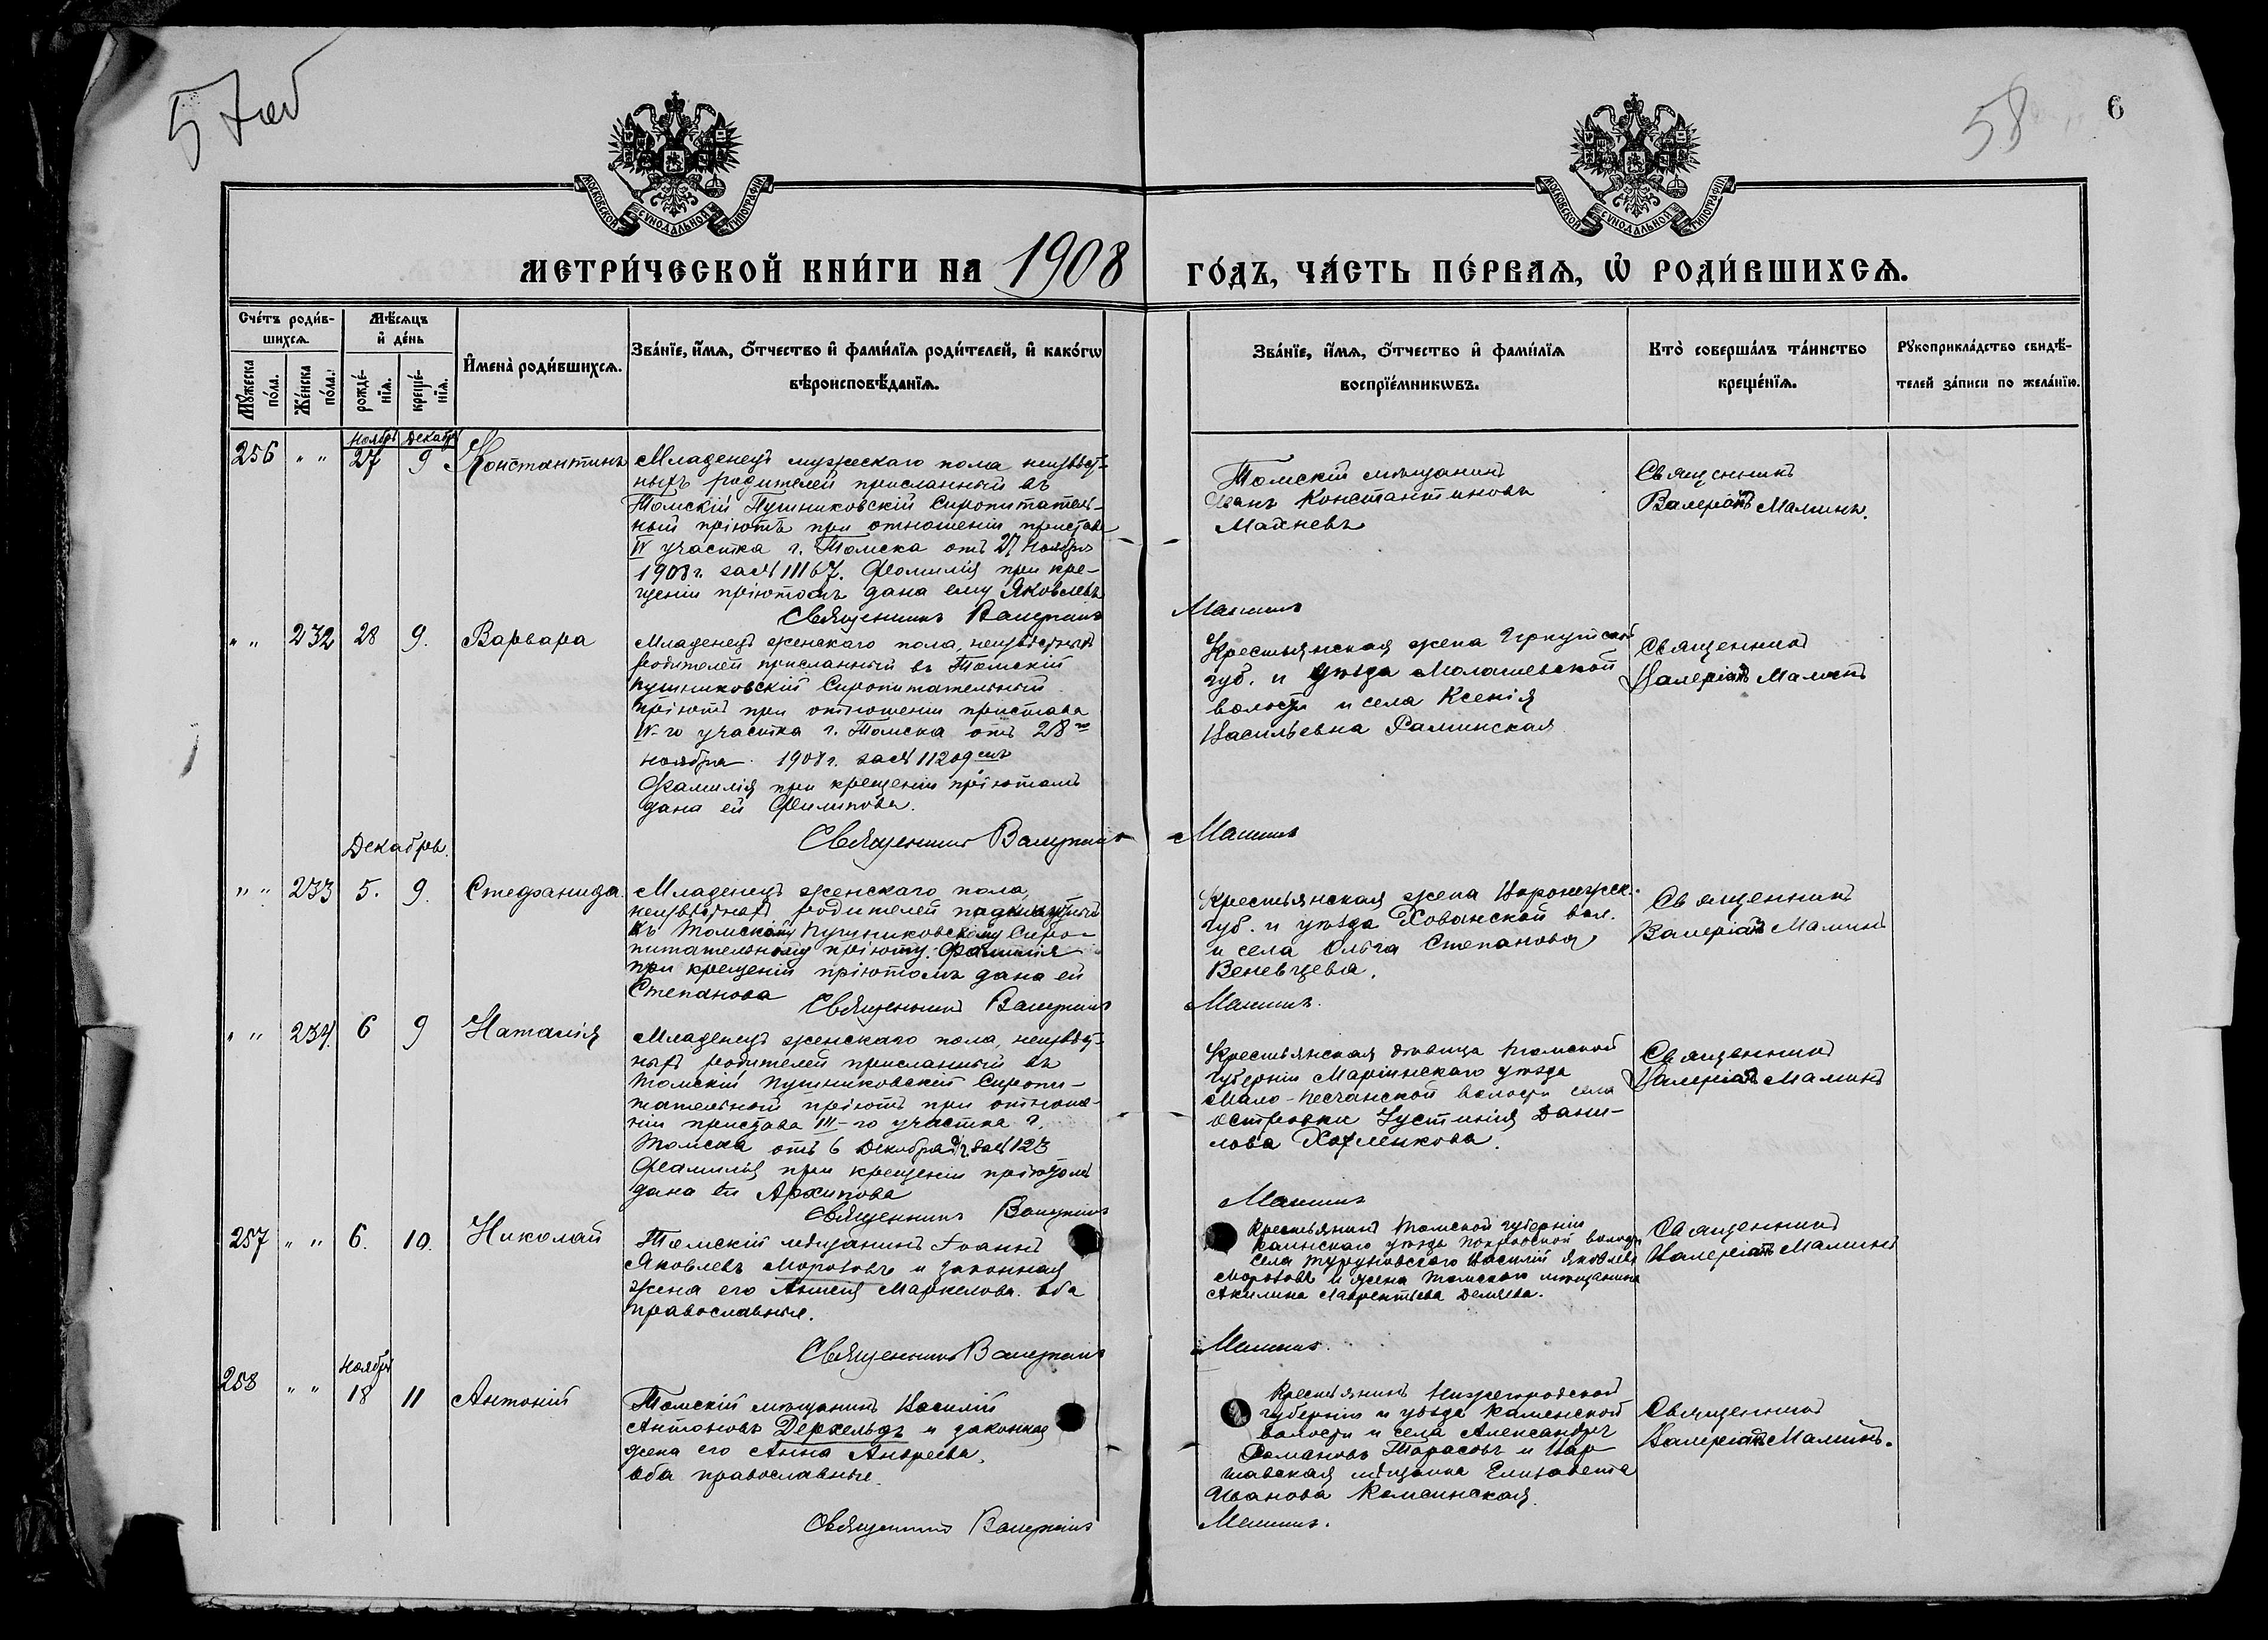 57об
58
6
МОСКОВСКОЙ СѴНОДАЛЬНОЙ ТИПОГРАФІИ
МОСКОВСКОЙ СѴНОДАЛЬНОЙ ТИПОГРАФІИ
МЕТРИ́ЧЕСКОЙ КНИ́ГИ НА 1908 ГО́ДЪ, ЧА́СТЬ ПЕ́РВАѦ, Ѽ РОДИ́ВШИХСѦ.
Сче́тъ роди́в-
шихсѧ.
Мѣ́сѧцъ
и҆ де́нь
Мꙋ́жеска по́ла.
Же́нска по́ла.
рожде́-нїѧ.
креще́-нїѧ.
И҆мена̀ роди́вшихсѧ.
Зва́нїе, и҆́мѧ, ѻ҆́тчество и҆ фами́лїѧ роди́телей, и҆ како́гѡ
вѣроисповѣ́данїѧ.
Зва́нїе, и҆́мѧ, ѻ҆́тчество и҆ фами́лїѧ
воспрїе́мникѡвъ.
Кто̀ соверша́лъ та́инство
креще́нїѧ.
Рꙋкоприкла́дство свидѣ́-
телей за́писи по жела́нїю.
Ноябрь Декабрь
256 " " 27 9 Константинъ
Младенецъ мужескаго пола неизвѣст-
ныхъ родителей присланный въ
Томскій Пушниковскій Сиропитатель-
ный пріютъ при отношеніи пристава
IV участка г. Томска отъ 27 Ноября
1908 г. за № 11167. Фамилія при кре-
щеніи пріютомъ дана ему Яковлевъ
Священникъ Валеріанъ Малинъ
Томскій мѣщанинъ
Иванъ Константиновъ
Махневъ
Священникъ
Валеріанъ Малинъ.
" " 232 28 9. Варвара
Младенецъ женскаго пола, неизвѣстныхъ
родителей присланный въ Томскій
Пушниковскій Сиропитательный
пріютъ при отношеніи пристава
IV-го участка г. Томска отъ 28
ноября 1908 г. за № 11209
Фамилія при крещеніи пріютомъ
дана ей Филипова.
Священникъ Валеріанъ Малинъ
Крестьянская жена Иркутской
губ. и уѣзда
волости и села Ксенія
Васильевна
Священникъ
Валеріанъ Малинъ
Декабрь.
" " 233 5. 9. Стефанида
Младенецъ женскаго пола,
неизвѣстныхъ родителей подкинутый
къ Томскому Пушниковскому Сиро-
питательному пріюту. Фамилія
при крещеніи пріютомъ дана ей
Степанова
Священникъ Валеріанъ Малинъ.
Крестьянская жена Воронежск.
губ. и уѣзда Хованской вол.
и села Ольга Степанова
Веневцева.
Священникъ
Валеріанъ Малинъ
" " 234. 6 9 Наталія
Младенецъ женскаго пола, неизвѣст-
ныхъ родителей присланный въ
Томскій Пушниковскій Сиропи-
тательный пріютъ при отноше-
ніи пристава III-го участка г.
Томска отъ 6 Декабря за № 123
Фамилія при крещеніи пріютомъ
дана ей Архипова
Священникъ Валеріанъ Малинъ
Крестьянская дѣвица Томской
губерніи Маріинскаго уѣзда
Мало-Песчанской волости села
Островки Устинія Дани-
лова
Священникъ
Валеріанъ Малинъ
257 " " 6. 10. Николай
Томскій мѣщанинъ Іоаннъ
Яковлевъ Морозовъ и законная
жена его Анисія Маркелова. Оба
православные.
Священникъ Валеріанъ Малинъ.
Крестьянинъ Томской губерніи
Каинскаго уѣзда Покровской волости
села Туруновскаго Василій Яковлевъ
Морозовъ и жена томскаго мѣщанина
Акилина Лаврентьева
Священникъ
Валеріанъ Малинъ
Ноябрь
258 " " 18 11 Антоній
Томскій мѣщанинъ Василій
Антоновъ Деркельдъ и законная
жена его Анна Андреева.
Оба православные.
Священникъ Валеріанъ Малинъ.
Крестьянинъ Нижегородской
губерніи и уѣзда Каменской
волости и села Александръ
Романовъ Тарасовъ и Вар-
шавская мѣщанка Елизавета
Иванова
Священникъ
Валеріанъ Малинъ.